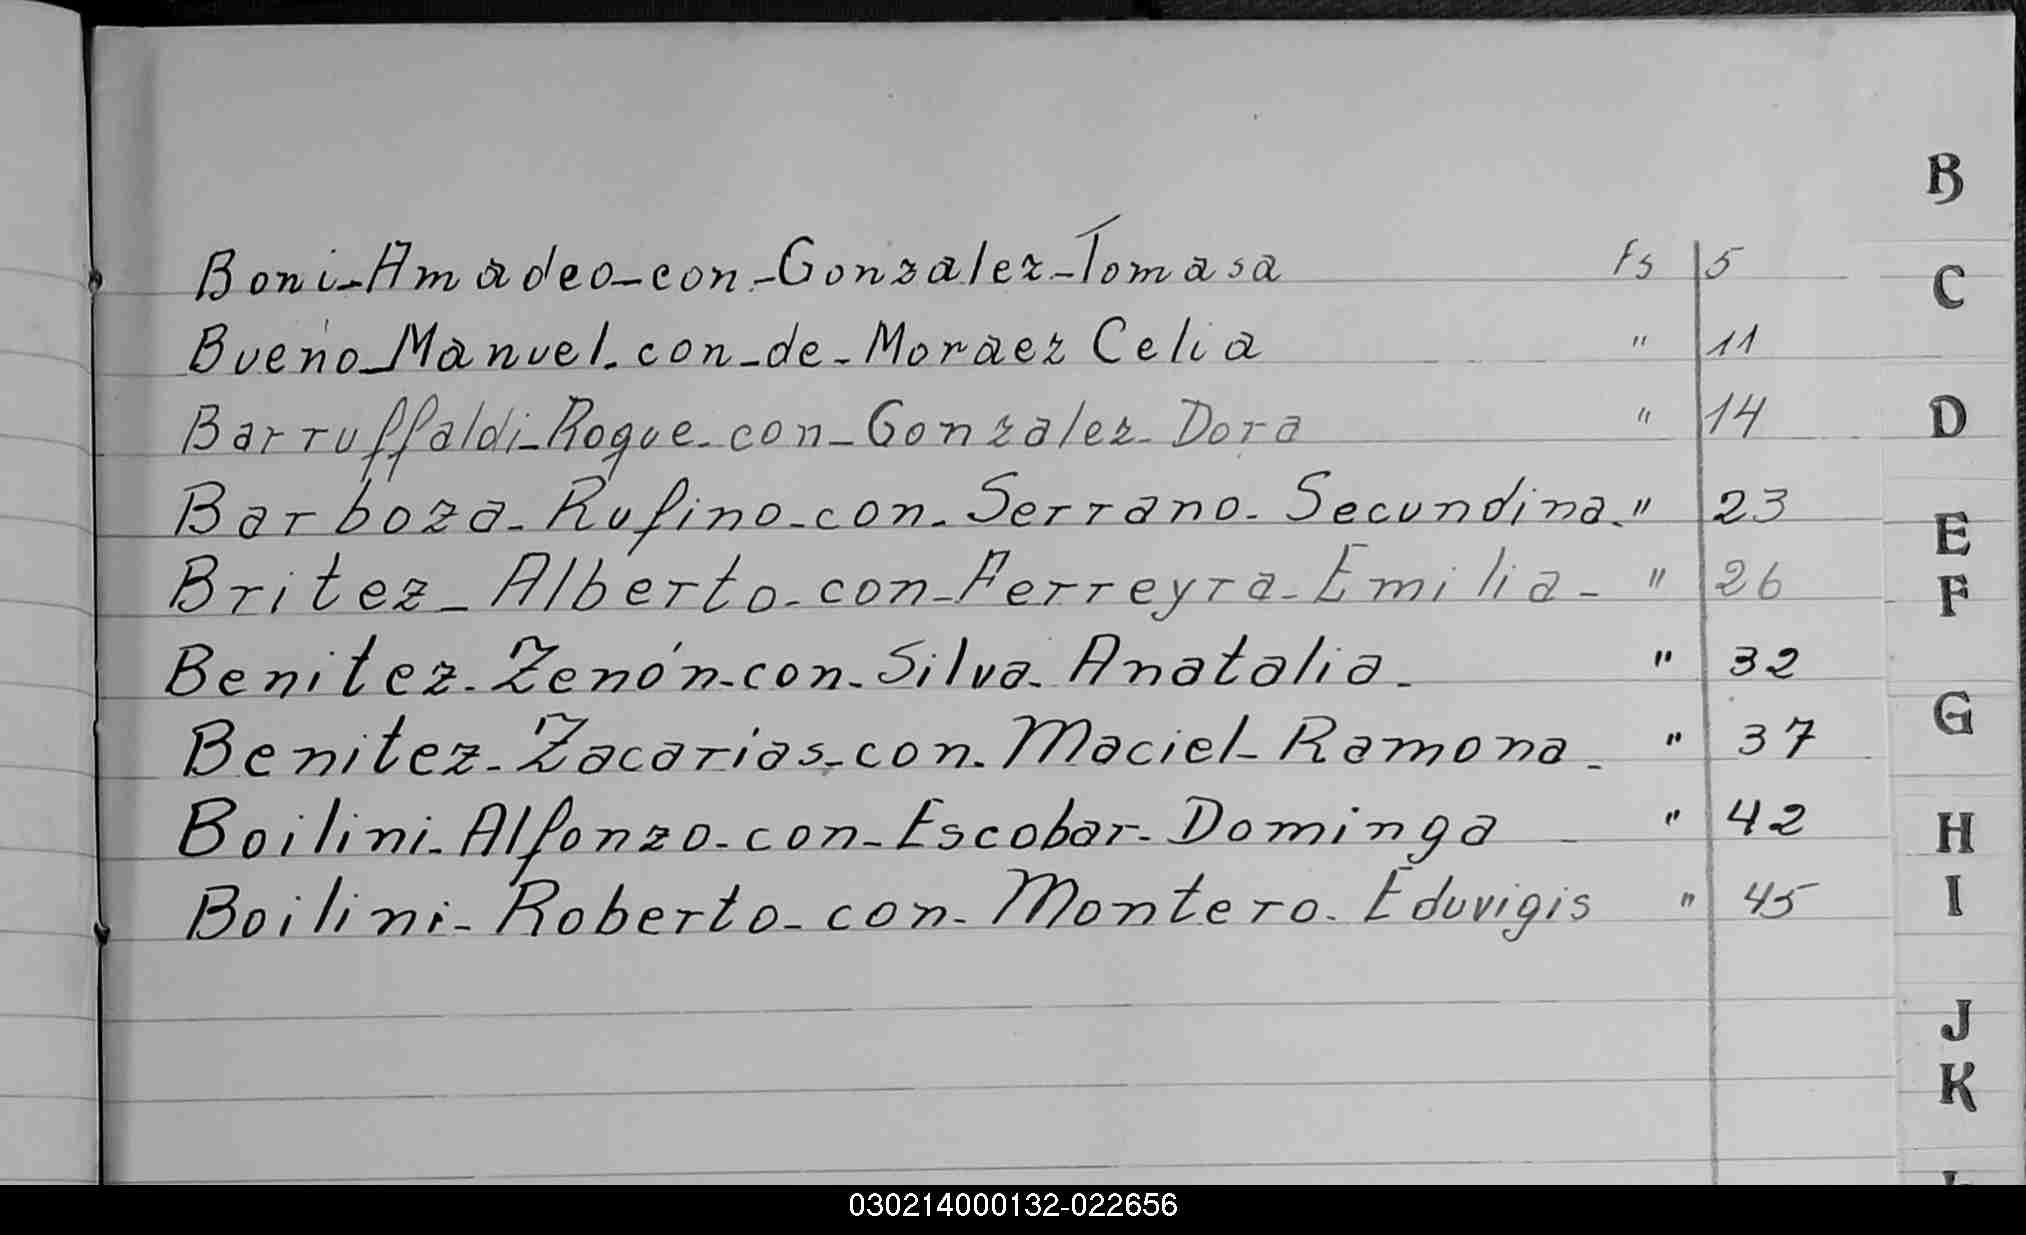 Boni-Amadeo-con-Gonzalez-Tomasa Fs 5
Bueno-Manuel-con-de-Moraez Celia " 11
Barruffaldi-Roque-con-Gonzalez-Dora " 14
Barboza-Rufino-con-Serrano-Secundina. " 23
Britez-Alberto-con-Ferreyra-Emilia- " 26
Benitez-Zenón-con-Silva-Anatalia- " 32
Benitez-Zacarias-con-Maciel-Ramona- " 37
Boilini-Alfonzo-con-Escobar-Dominga " 42
Boilini-Roberto-con-Montero-Eduvigis " 45
B
C
D
E
F
G
H
I
J
K
030214000132-022656